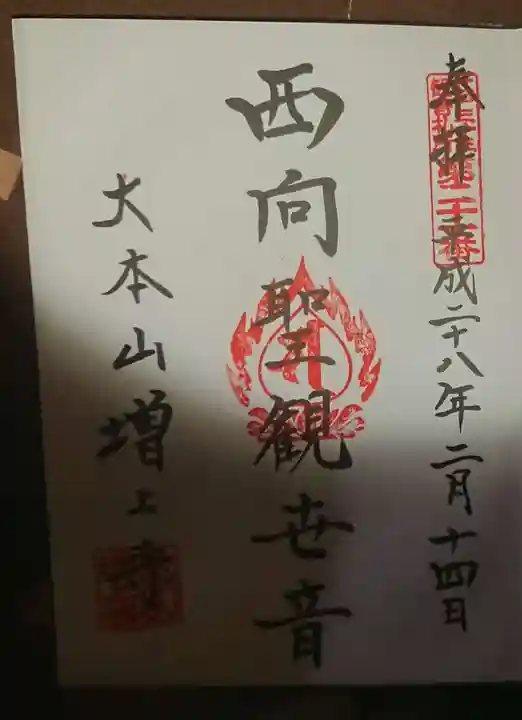 奉拝 平成二十八年二月十四日
西向聖観世音
大本山増上寺